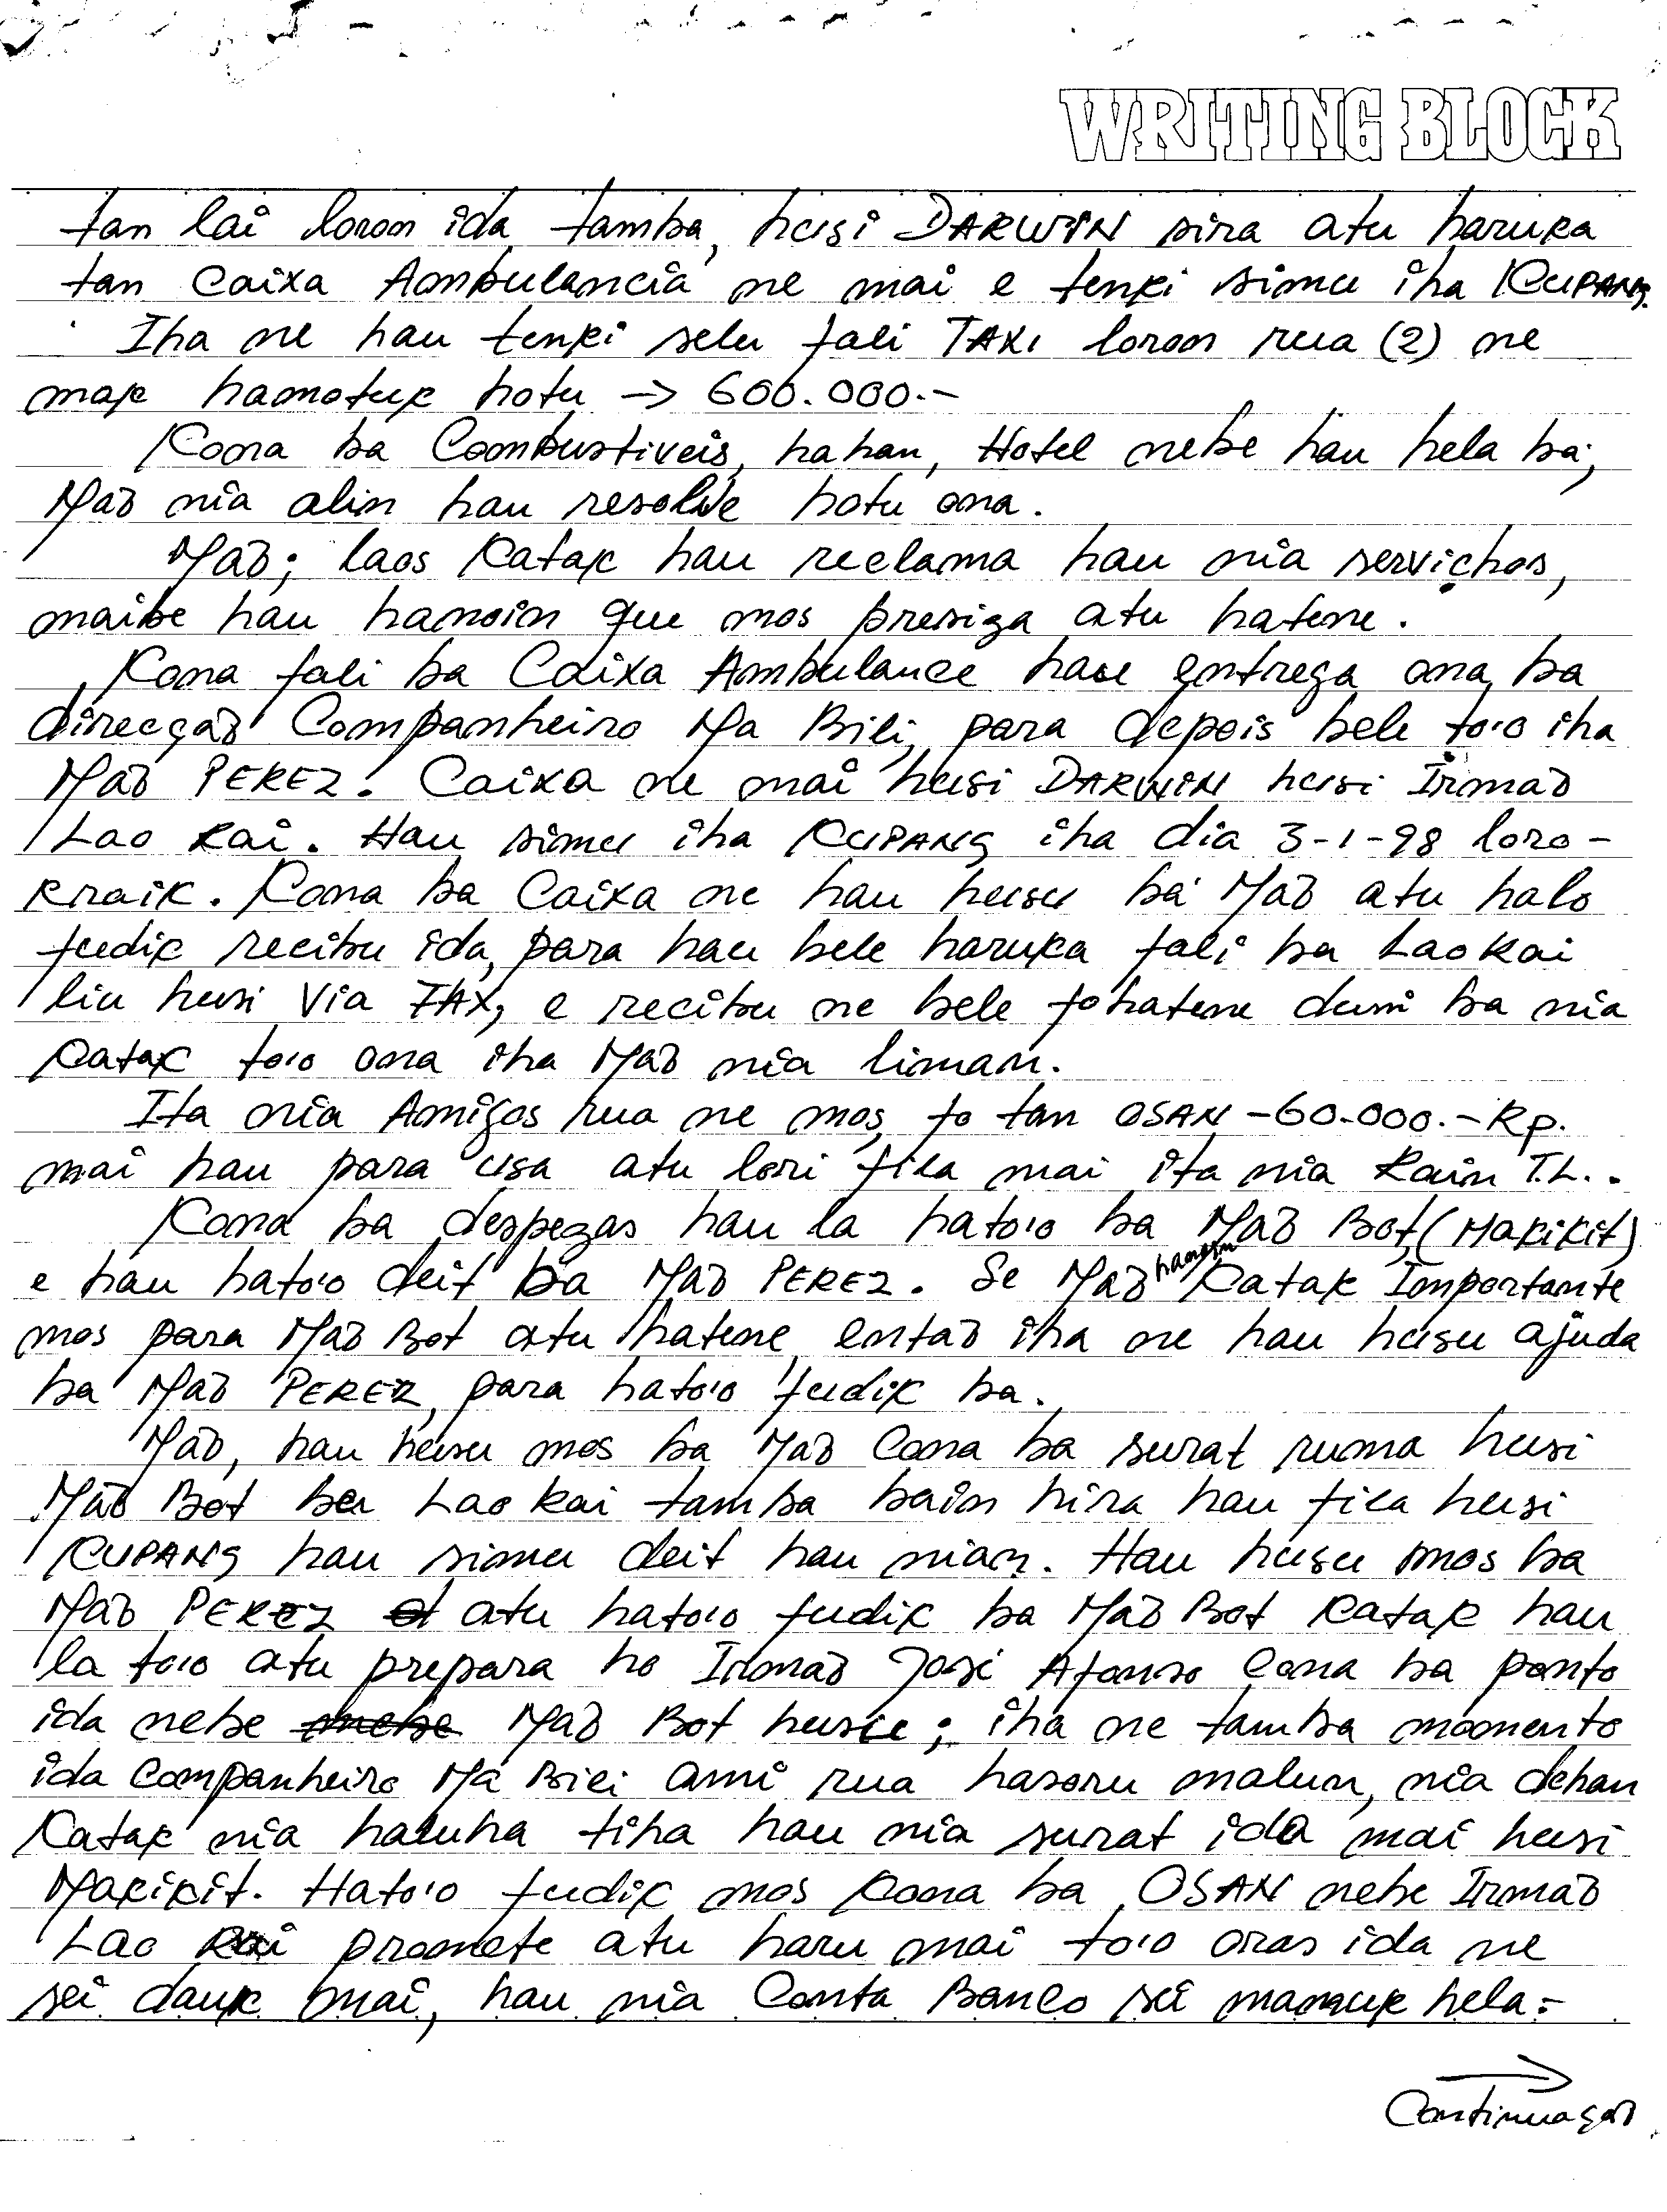 WRITING BLOCK
tan lai loron ida, tamba, husi DARWIN sira atu haruka
tan Caixa Ambulancia ne mai e tenki simu iha KUPANG.
Iha ne hau tenki selu fali TAXI loron rua (2) ne
mak hamotuk hotu -> 600.000.-
Kona ba Combustiveis, hahan, Hotel nebe hau hela ba;
Maõ nia alin hau resolve hotu ona.
Maõ; laos Katak hau reclama hau nia servichos,
maibe hau hanoin que mos presiza atu hatene.
Kona fali ba Caixa Ambulance hau entrega ona ba
direcçaõ Companheiro Ma Bili, para depois bele to'o iha
Maõ PEREZ. Caixa ne mai husi DARWIN husi Irmaõ
Lao Kai. Hau simu iha KUPANG iha dia 3-1-98 loro-
kraik. Kona ba Caixa ne hau husu ba Maõ atu halo
tudik recibu ida, para hau bele haruka fali ba Lao Kai
liu husi Via FAX, e recibu ne bele fo hatene duni ba nia
Katak to'o ona iha Maõ nia liman.
Ita nia Amigos rua ne mos, fo tan OSAN -60.000.- Rp.
mai hau para usa atu lori fila mai ita nia Rain T.L..
Kona ba despezas hau la hato'o ba Maõ Bot, (Makikit)
e hau hato'o deit ba Maõ PEREZ. Se Maõ hanoin Katak Importante
mos para Maõ Bot atu hatene, entaõ iha ne hau husu ajuda
ba Maõ PEREZ, para hato'o tudik ba.
Maõ, hau husu mos ba Maõ Cona ba surat ruma husi
Maõ Bot ba Lao Kai tamba bain hira hau fila husi
KUPANG hau simu deit hau nian. Hau husu mos ba
Maõ PEREZ atu hato'o tudik ba Maõ Bot Katak hau
la to'o atu prepara ho Irmaõ José Afonso Cona ba ponto
ida nebe Maõ Bot husu; iha ne tamba momento
ida Companheiro Ma Bili ami rua hasoru malun, nia dehan
Katak nia haluha tiha hau nia surat ida mai husi
Makikit. Hato'o tudik mos Kona ba OSAN nebe Irmaõ
Lao Kai promete atu haru mai to'o oras ida ne
sei dauk mai, hau nia Conta Banco sei mamuk hela.-
Continuaçaõ